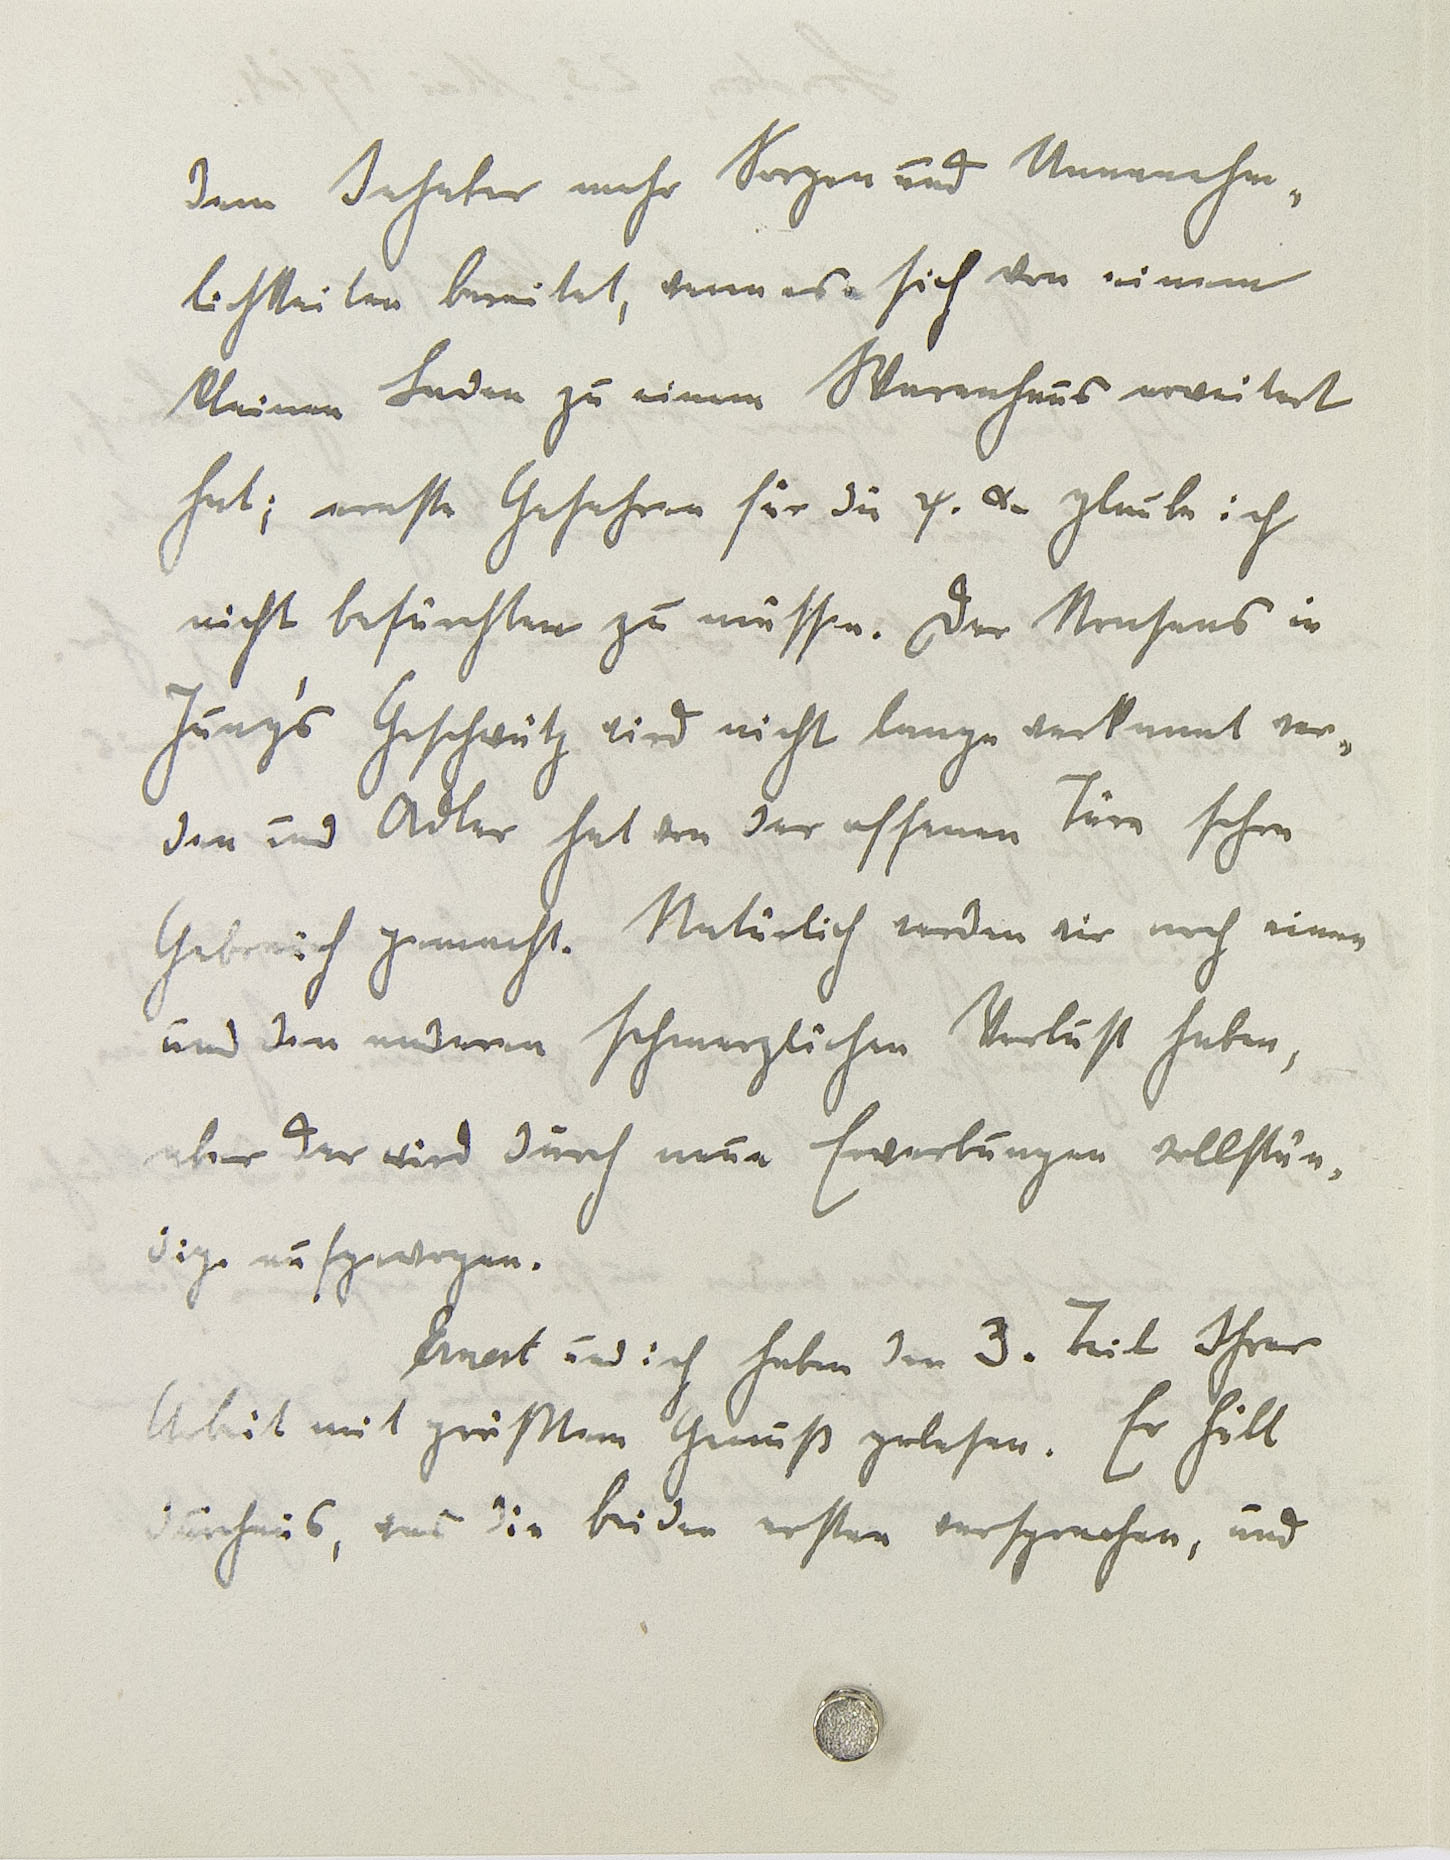 dem Inhaber mehr Sorgen und Unannehm-
lichkeiten bereitet, wenn es sich von einem
kleinen Laden zu einem Warenhaus erweitert
hat; ernste Gefahren für die ψ. α. glaube ich
nicht befürchten zu müssen. Der Nonsens in
Jung's Geschwätz wird nicht lange verkannt wer-
den und Adler hat von der offenen Türe schon
Gebrauch gemacht. Natürlich werden wir noch einen
und den anderen schmerzlichen Verlust haben,
aber der wird durch neue Erwerbungen vollstän-
dig aufgewogen.
Ernest und ich haben den 3. Teil Ihrer
Arbeit mit größtem Genuß gelesen. Er hält
durchaus, was die beiden ersten versprachen, und